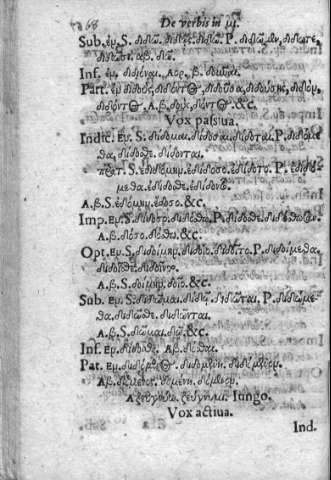 De verbis in μι.
Sub. ἐμ. S. διδῶ. διδῷς. διδῷ. P. διδῶμεν, διδῶτε,
διδῶσι. αβ. δῶ.
Inf. ἐμ. διδόναι. Αορ. β. δοῦναι.
Part. ἐμ διδούς, διδόντος, διδοῦσα, διδούσης, διδόν,
διδόντος. Α. β. δούς, δόντος. &c.
Vox passiua.
Indic. Εν. S. δίδομαι. δίδοσαι. δίδοται. P. διδόμε
θα, δίδοσθε. δίδονται.
πρατ. S. ἐδιδόμην. ἐδίδοσο. ἐδίδοτο. P. ἐδιδό
μεθα. ἐδίδοσθε. ἐδίδοντο.
Α. β. S. ἐδόμην. ἔδοσο. &c.
Imp. Εν. S. δίδοσο. διδόσθω. P. δίδοσθε. διδόσθωσαν.
Α. β. δόσο. δόσθω. &c.
Opt. Εν. S. διδοίμην. διδοῖο. διδοῖτο. P. διδοίμεθα.
διδοῖσθε. διδοῖντο.
Α. β. S. δοίμην. δοῖο. &c.
Sub. Εν. S. διδῶμαι. διδῷ. διδῶται. P. διδώμε
θα. διδῶσθε. διδῶνται.
Α. β. S. δῶμαι. δῷ. &c.
Inf. Εν. δίδοσθαι. Αβ. δόσθαι.
Par. Εν. διδόμενος. διδομένη. διδόμενον.
Αβ. δόμενος. δομένη. δόμενον.
ζεύγνυμι. Iungo.
Vox actiua.
Ind.